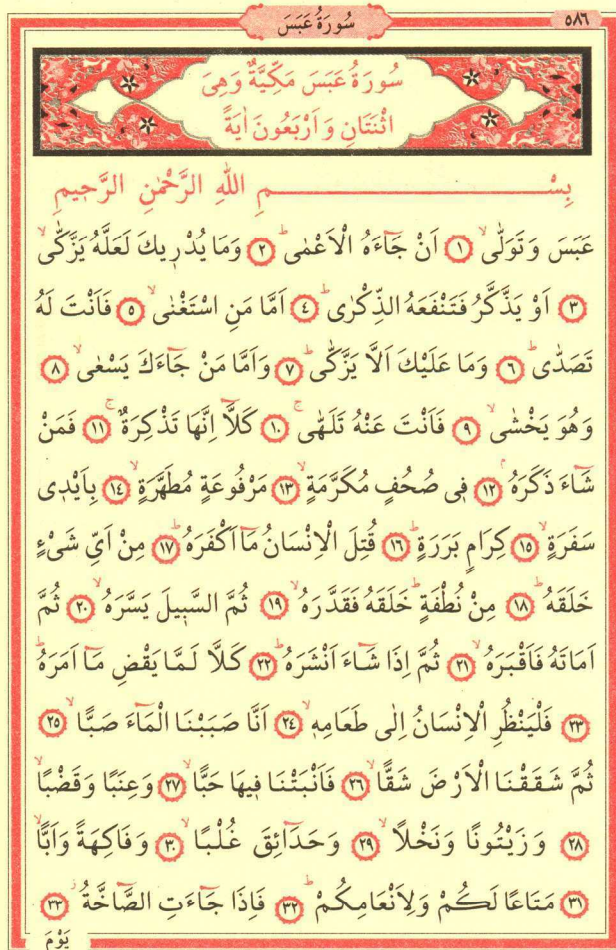 ٥٨٦
سُورَةُ عَبَسَ
سُورَةُ عَبَسَ مَكِّيَّةٌ وَهِىَ
اثْنَتَانِ وَ اَرْبَعُونَ اٰيَةً
بِسْــــــــــــــمِ اللّٰهِ الرَّحْمٰنِ الرَّح۪يمِ
عَبَسَ وَتَوَلّٰىۙ ١ اَنْ جَٓاءَهُ الْاَعْمٰىۜ ٢ وَمَا يُدْر۪يكَ لَعَلَّهُ يَزَّكّٰىۙ
٣ اَوْ يَذَّكَّرُ فَتَنْفَعَهُ الذِّكْرٰىۜ ٤ اَمَّا مَنِ اسْتَغْنٰىۙ ٥ فَاَنْتَ لَهُ
تَصَدّٰىۜ ٦ وَمَا عَلَيْكَ اَلَّا يَزَّكّٰىۜ ٧ وَاَمَّا مَنْ جَٓاءَكَ يَسْعٰىۙ ٨
وَهُوَ يَخْشٰىۙ ٩ فَاَنْتَ عَنْهُ تَلَهّٰىۚ ١٠ كَلَّٓا اِنَّهَا تَذْكِرَةٌۚ ١١ فَمَنْ
شَٓاءَ ذَكَرَهُۢ ١٢ ف۪ى صُحُفٍ مُكَرَّمَةٍۙ ١٣ مَرْفُوعَةٍ مُطَهَّرَةٍۙ ١٤ بِاَيْد۪ى
سَفَرَةٍۙ ١٥ كِرَامٍ بَرَرَةٍۜ ١٦ قُتِلَ الْاِنْسَانُ مَٓا اَكْفَرَهُۜ ١٧ مِنْ اَىِّ شَىْءٍ
خَلَقَهُۜ ١٨ مِنْ نُطْفَةٍۜ خَلَقَهُ فَقَدَّرَهُۙ ١٩ ثُمَّ السَّب۪يلَ يَسَّرَهُۙ ٢٠ ثُمَّ
اَمَاتَهُ فَاَقْبَرَهُۙ ٢١ ثُمَّ اِذَا شَٓاءَ اَنْشَرَهُۜ ٢٢ كَلَّا لَمَّا يَقْضِ مَٓا اَمَرَهُۜ
٢٣ فَلْيَنْظُرِ الْاِنْسَانُ اِلٰى طَعَامِه۪ۙ ٢٤ اَنَّا صَبَبْنَا الْمَٓاءَ صَبًّاۙ ٢٥
ثُمَّ شَقَقْنَا الْاَرْضَ شَقًّاۙ ٢٦ فَاَنْبَتْنَا ف۪يهَا حَبًّاۙ ٢٧ وَعِنَبًا وَقَضْبًاۙ
٢٨ وَزَيْتُونًا وَنَخْلًاۙ ٢٩ وَحَدَٓائِقَ غُلْبًاۙ ٣٠ وَفَاكِهَةً وَاَبًّاۙ
٣١ مَتَاعًا لَكُمْ وَلِاَنْعَامِكُمْۜ ٣٢ فَاِذَا جَٓاءَتِ الصَّٓاخَّةُۘ ٣٣
يَوْمَ